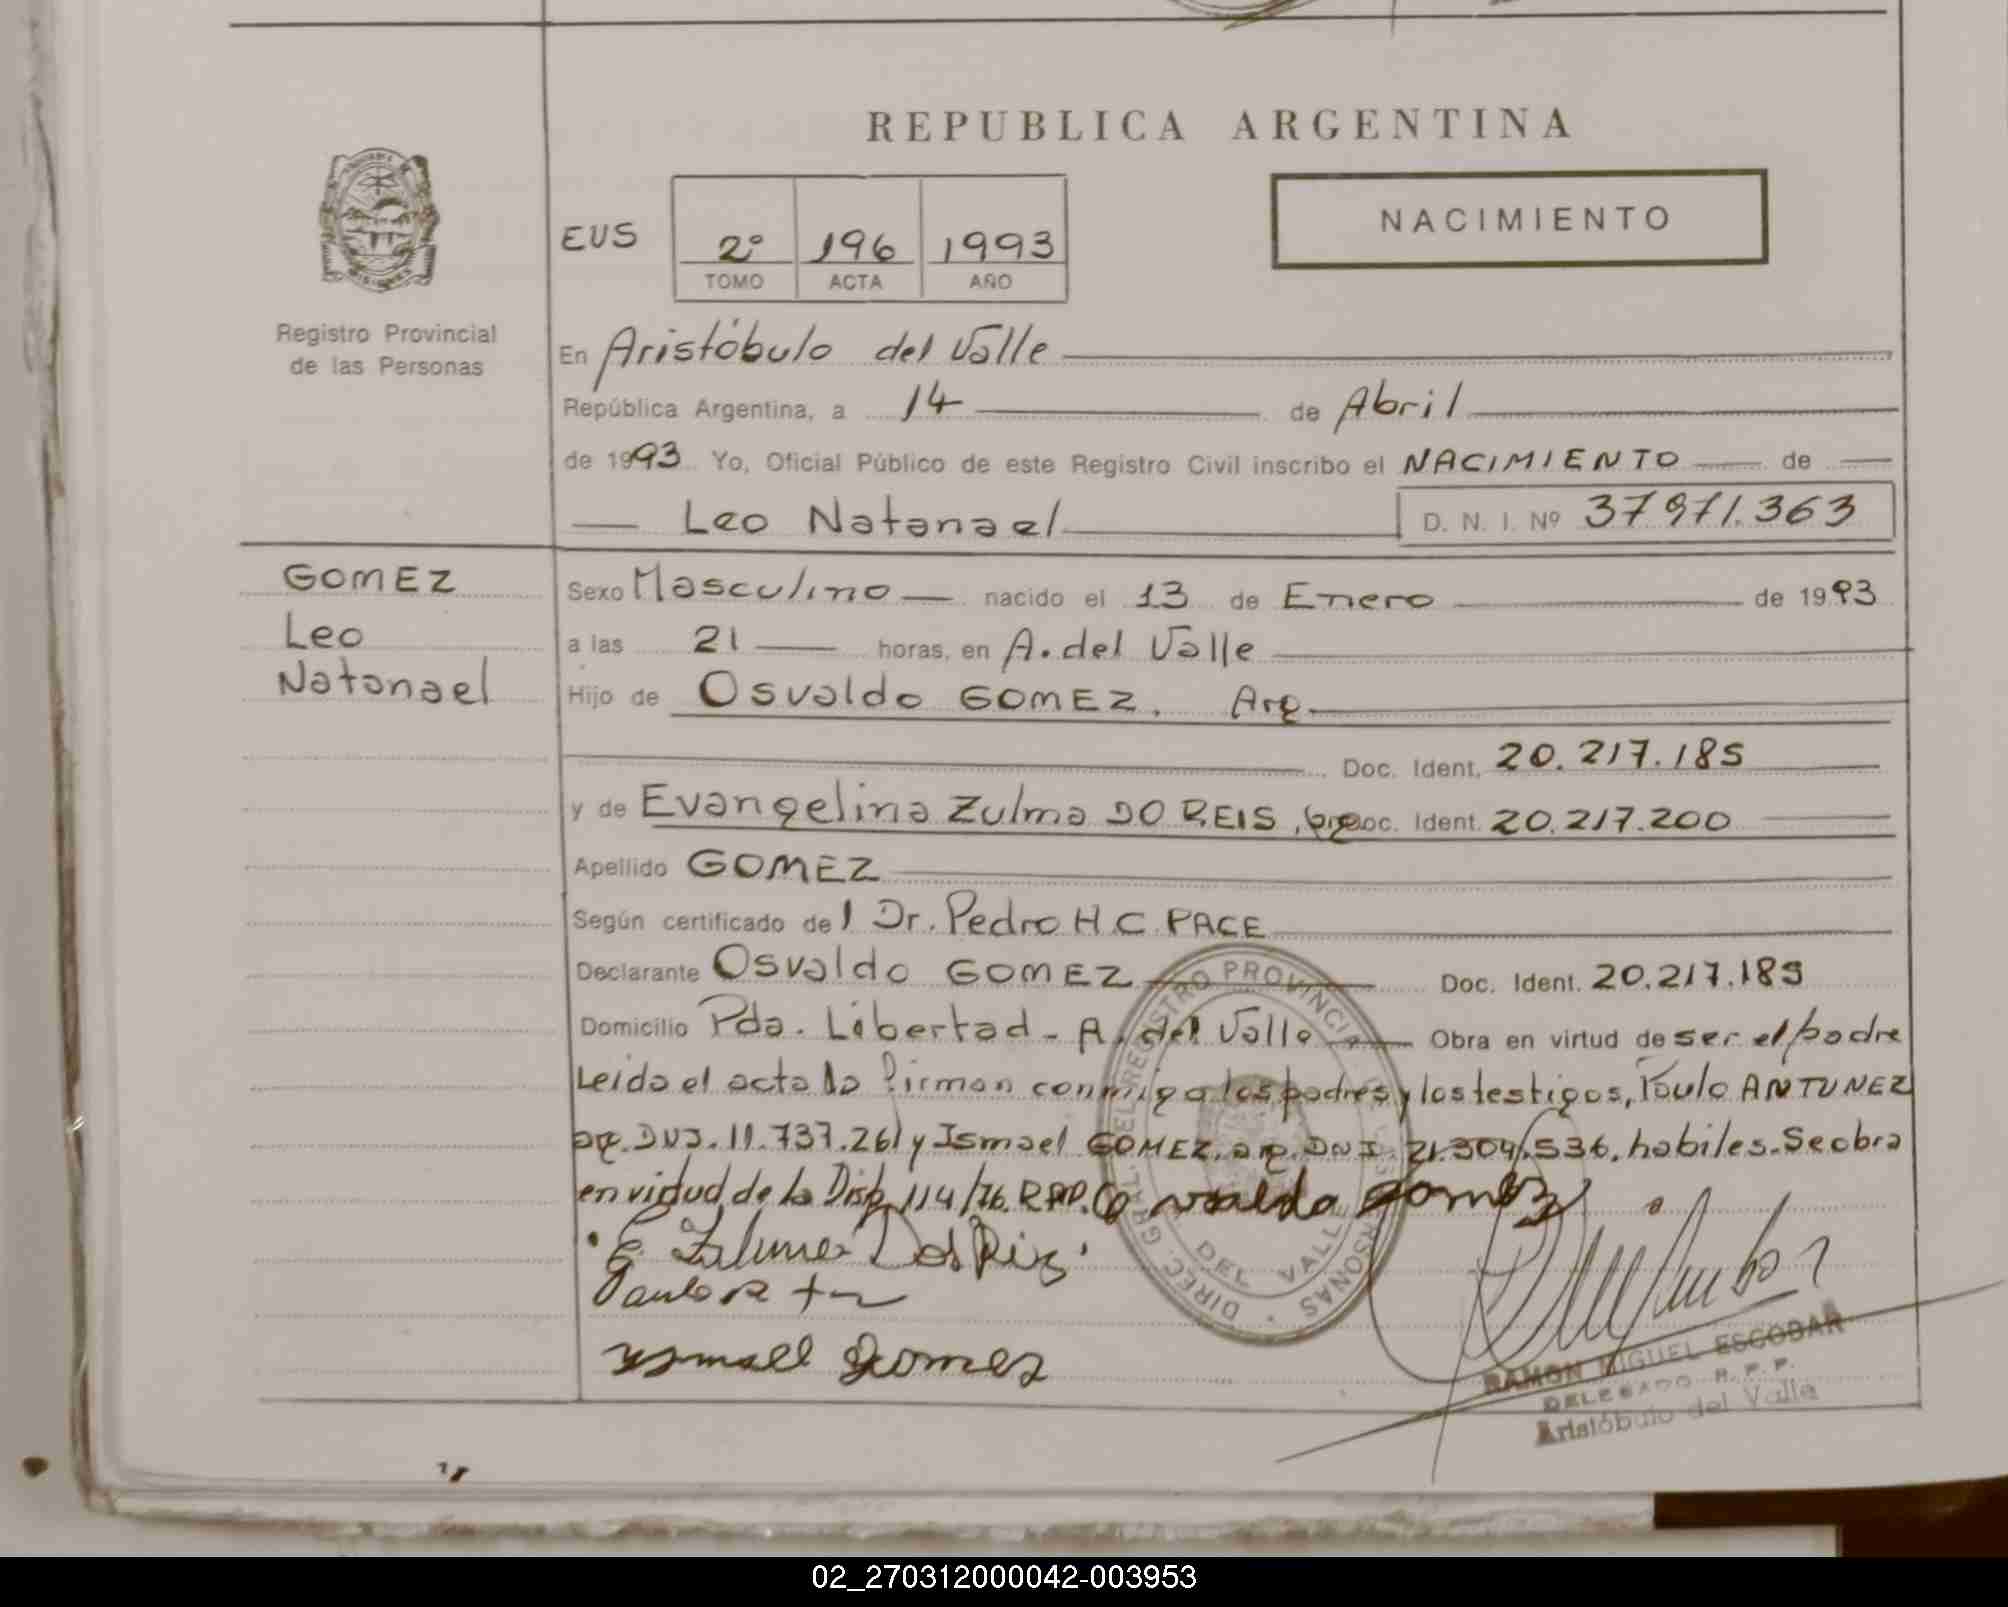 REPUBLICA ARGENTINA
NACIMIENTO
EUS 2º 196 1993
TOMO ACTA AÑO
Registro Provincial
de las Personas
En Aristóbulo del Valle
República Argentina, a 14 de Abril
de 1993 Yo, Oficial Público de este Registro Civil inscribo el NACIMIENTO de
Leo Natanael D. N. I. Nº 37971.363
GOMEZ
Leo
Natanael
Sexo Masculino nacido el 13 de Enero de 1993
a las 21 horas, en A. del Valle
Hijo de Osvaldo GOMEZ. Arg.
Doc. Ident. 20.217.185
y de Evangelina Zulma DO REIS, Doc. Ident. 20.217.200
Apellido GOMEZ
Según certificado del Dr. Pedro H.C. PACE
Declarante Osvaldo GOMEZ Doc. Ident. 20.217.185
Domicilio Pda. Libertad - A. del Valle Obra en virtud de ser el padre
Leida el acta la firman conmigo los padres y los testigos, Paulo ANTUNEZ
arg. DNI. 11.737.261 y Ismael GOMEZ, arg. DNI. 21.304.536. habiles. Se obra
en virtud de la Disp. 114/76. RPP. Osvaldo Gomez
Ismael Gomez
DIREC. GRAL. DEL REGISTRO PROVINCIAL DE LAS PERSONAS
DEL VALLE
RAMON MIGUEL ESCOBAR
DELEGADO R. P. P.
Aristóbulo del Valle
02_270312000042-003953